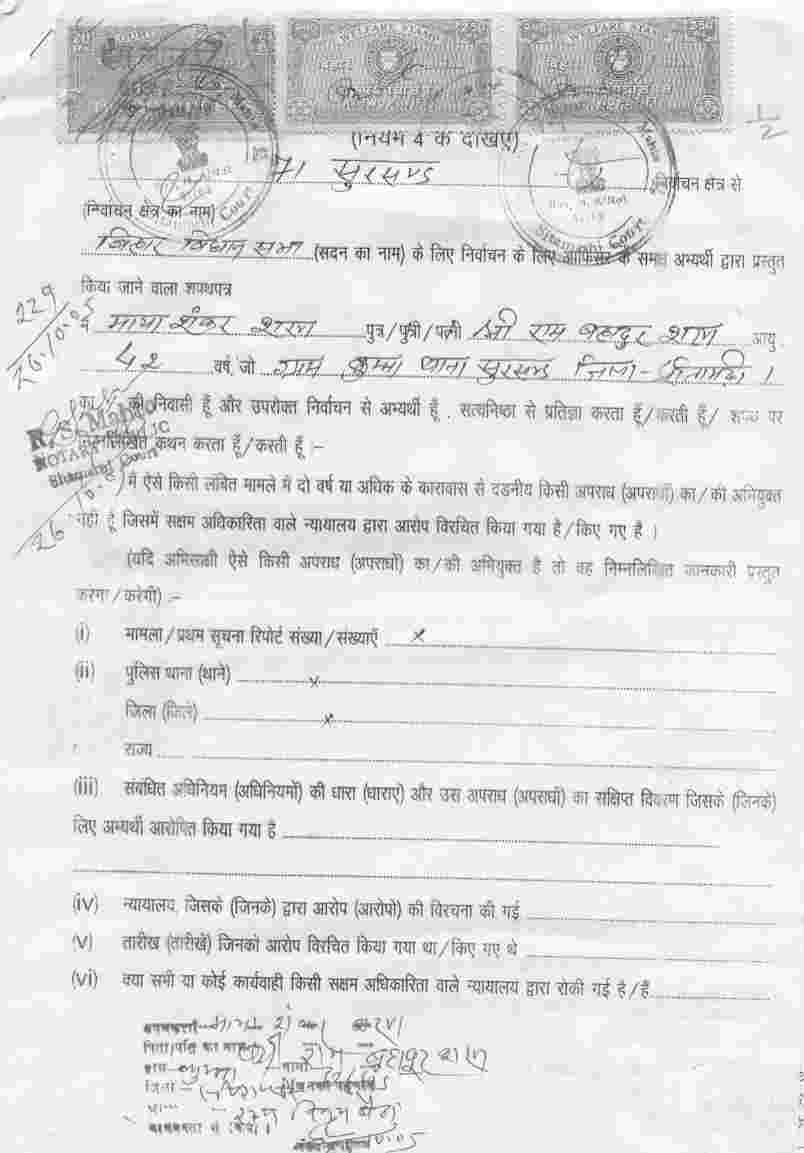 WELFARE STAMP WELFARE STAMP
1/2
(नियम 4 क देखिए)
71 सुरसण्ड निर्वाचन क्षेत्र से
(निर्वाचन क्षेत्र का नाम)
बिहार विधान सभा (सदन का नाम) के लिए निर्वाचन के लिए आफिसर के समक्ष अभ्यर्थी द्वारा प्रस्तुत
किया जाने वाला शपथपत्र
229
26.10.05
मै माया शंकर शरण पुत्र/पुत्री/पत्नी श्री राम बहादुर शरण आयु
42 वर्ष, जो ग्राम कुम्मा थाना सुरसण्ड जिला-सीतामढ़ी ।
का/की निवासी हूँ और उपरोक्त निर्वाचन से अभ्यर्थी हूँ , सत्यनिष्ठा से प्रतिज्ञा करता हूँ/करती हूँ/ शपथ पर
निम्नलिखित कथन करता हूँ/करती हूँ :-
NOTARY PUBLIC
Sitamarhi Court
मै ऐसे किसी लंबित मामले मे दो वर्ष या अधिक के कारावास से दंडनीय किसी अपराध (अपराधों) का/की अभियुक्त
नहीं हूँ जिसमें सक्षम अधिकारिता वाले न्यायालय द्वारा आरोप विरचित किया गया है/किए गए है ।
(यदि अभिसाक्षी ऐसे किसी अपराध (अपराधों) का/की अभियुक्त है तो वह निम्नलिखित जानकारी प्रस्तुत
करेगा/करेगी) :-
(i) मामला/प्रथम सूचना रिपोर्ट संख्या/संख्याएँ x
(ii) पुलिस थाना (थाने) x
जिला (जिले) x
राज्य
(iii) संबंधित अधिनियम (अधिनियमों) की धारा (धाराएं) और उस अपराध (अपराधों) का संक्षिप्त विवरण जिसके (जिनके)
लिए अभ्यर्थी आरोपित किया गया है
(iv) न्यायालय, जिसके (जिनके) द्वारा आरोप (आरोपो) की विरचना की गई
(v) तारीख (तारीखें) जिनको आरोप विरचित किया गया था/किए गए थे
(vi) क्या सभी या कोई कार्यवाही किसी सक्षम अधिकारिता वाले न्यायालय द्वारा रोकी गई है/हैं
माया शंकर शरण
पिता/पति का नाम श्री राम बहादुर शरण
ग्राम कुम्मा
जिला